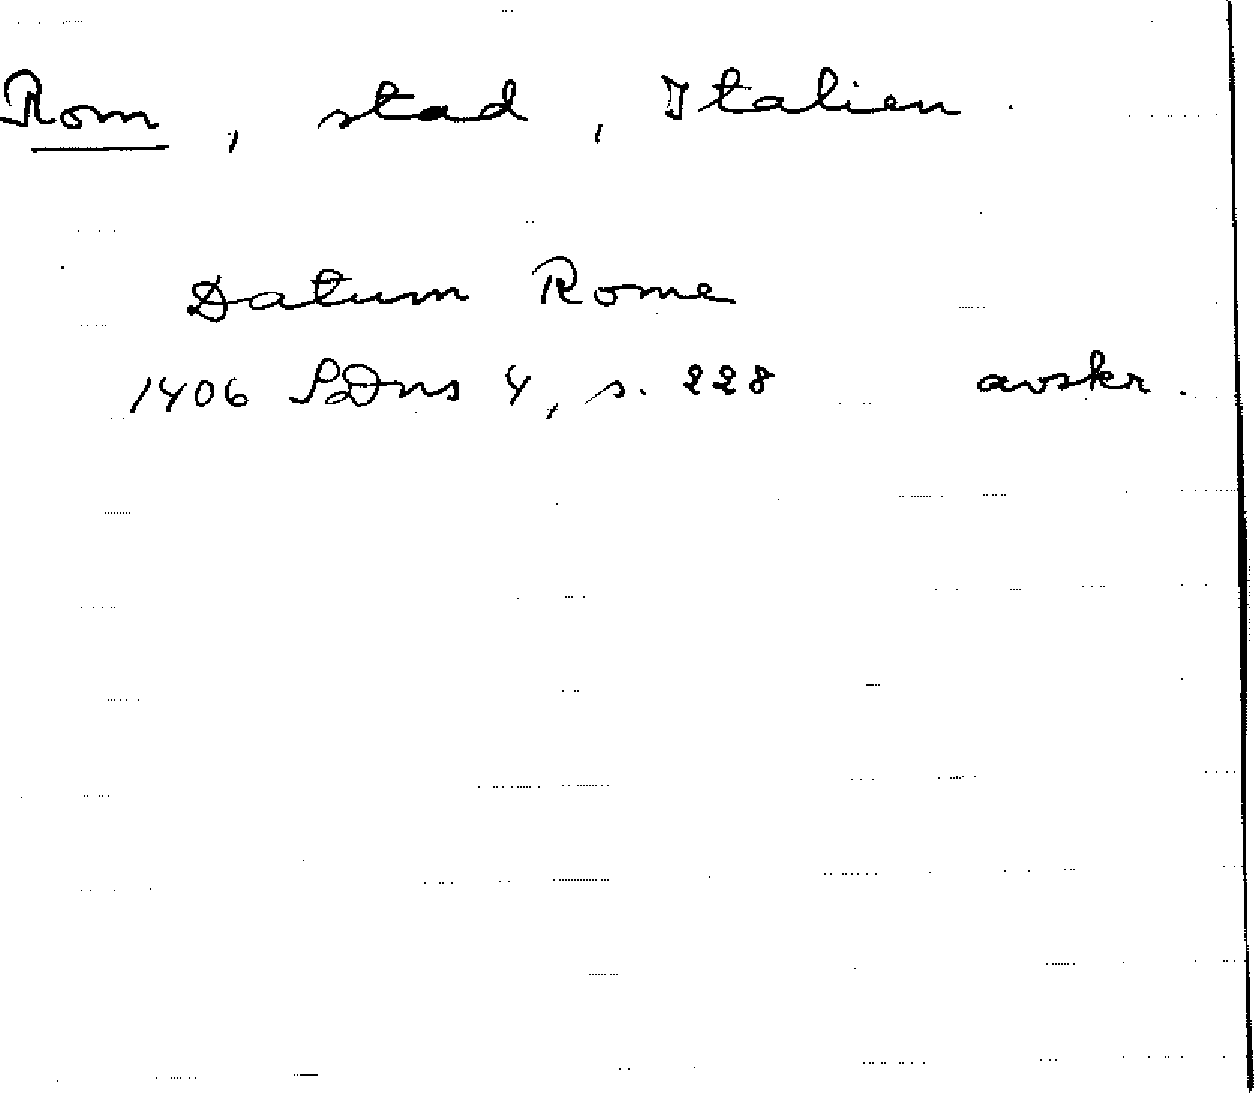 Rom, stad, Italien.
Datum Rome
1406 SDns 4, s. 228 avskr.